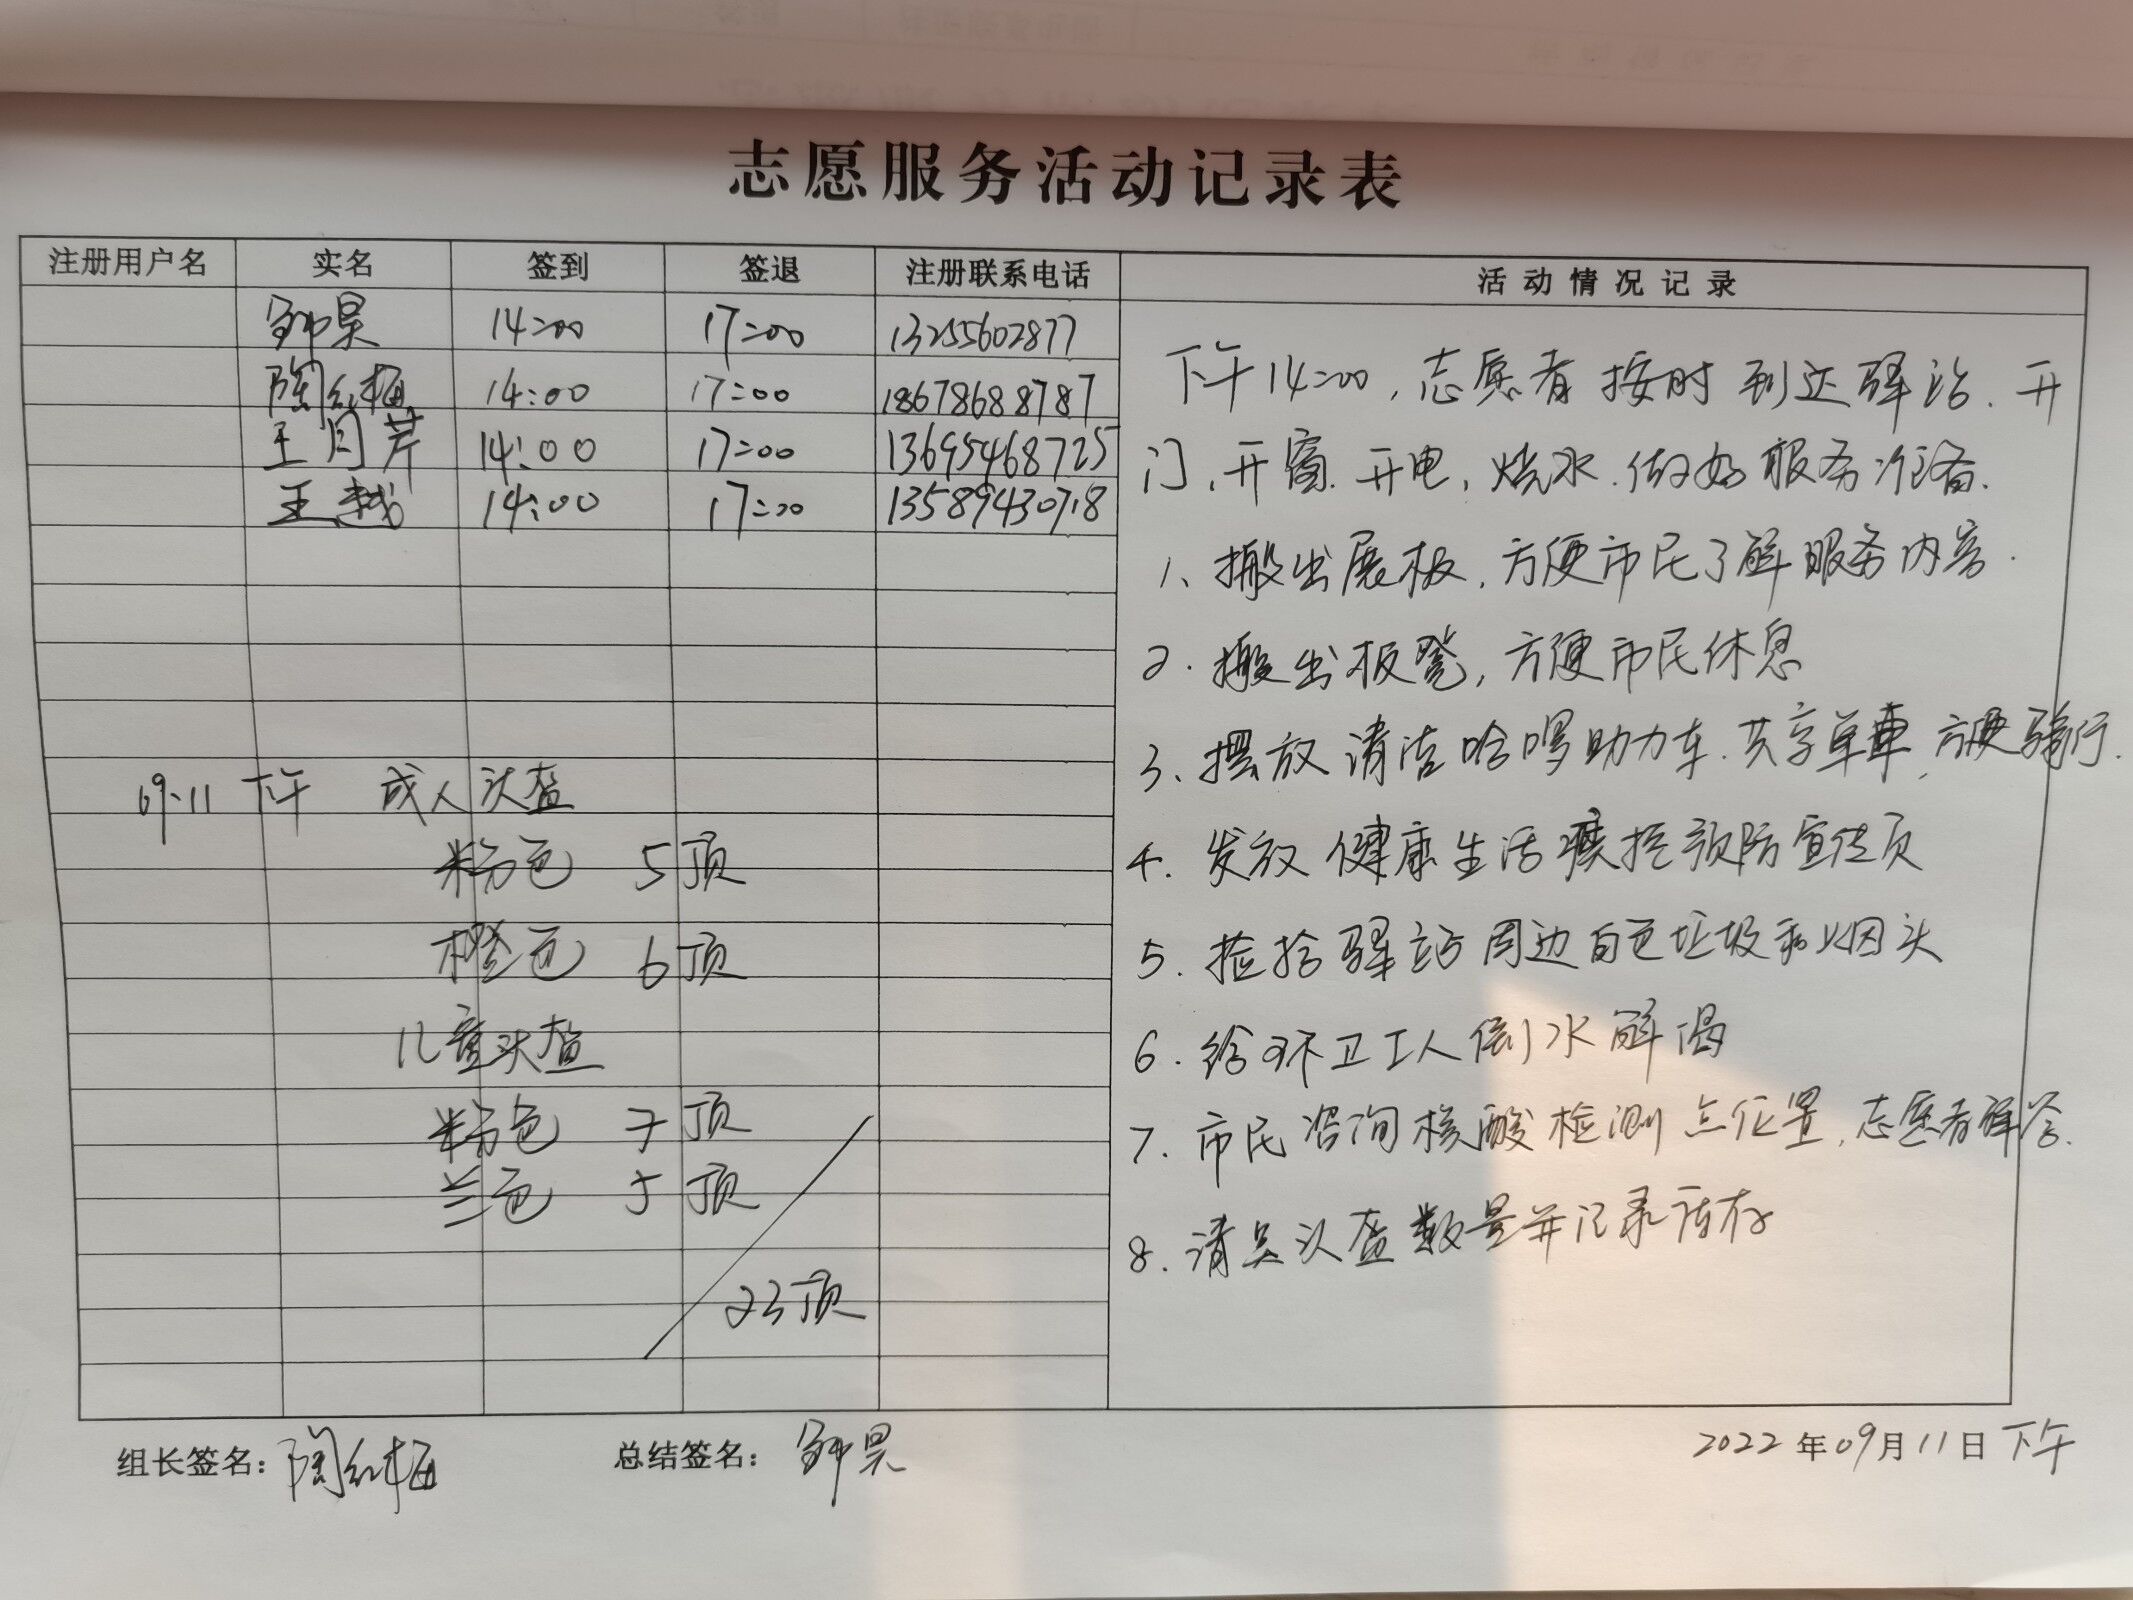 志愿服务活动记录表
注册用户名 实名 签到 签退 注册联系电话 活动情况记录
昊 14:00 17:00 13255602877
陶红梅 14:00 17:00 18678688787
王月芹 14:00 17:00 13695468725
王越 14:00 17:00 13589430718
09.11 下午 成人头盔
粉色 5顶
橙色 6顶
儿童头盔
粉色 7顶
兰色 5顶
23顶
下午14:00,志愿者按时到达驿站.开
门,开窗.开电,烧水.做好服务准备.
1、搬出展板,方便市民了解服务内容.
2.搬出板凳,方便市民休息
3、摆放清洁哈啰助力车.共享单車,方便骑行.
4.发放健康生活 预防宣传页
5.捡拾驿站周边白色垃圾和烟头
6.给环卫工人倒水解渴
7.市民咨询核酸检测点位置,志愿者解答.
8.清点头盔数量并记录
组长签名:陶红梅 总结签名: 昊 2022年09月11日下午